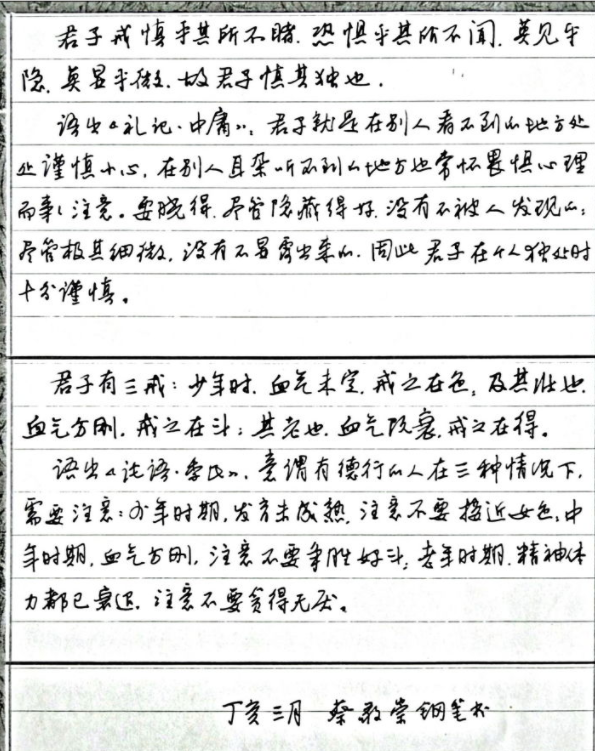 君子戒慎乎其所不睹,恐惧乎其所不闻,莫见乎
隐,莫显乎微,故君子慎其独也.
语出《礼记·中庸》。君子就是在别人看不到的地方处
处谨慎小心,在别人耳朵听不到的地方也常怀畏惧心理
而事注意。要晓得,尽管隐藏得好,没有不被人发现的;
尽管极其细微,没有不显露出来的.因此君子在个人独处时
十分谨慎。
君子有三戒:少年时,血气未定,戒之在色;及其壮也,
血气方刚,戒之在斗;其老也,血气既衰,戒之在得。
语出《论语·季氏》。意谓有德行的人在三种情况下,
需要注意:少年时期,发育未成熟,注意不要接近女色;中
年时期,血气方刚,注意不要争胜好斗;老年时期,精神体
力都已衰退,注意不要贪得无厌。
丁亥三月 蔡敬崇钢笔书